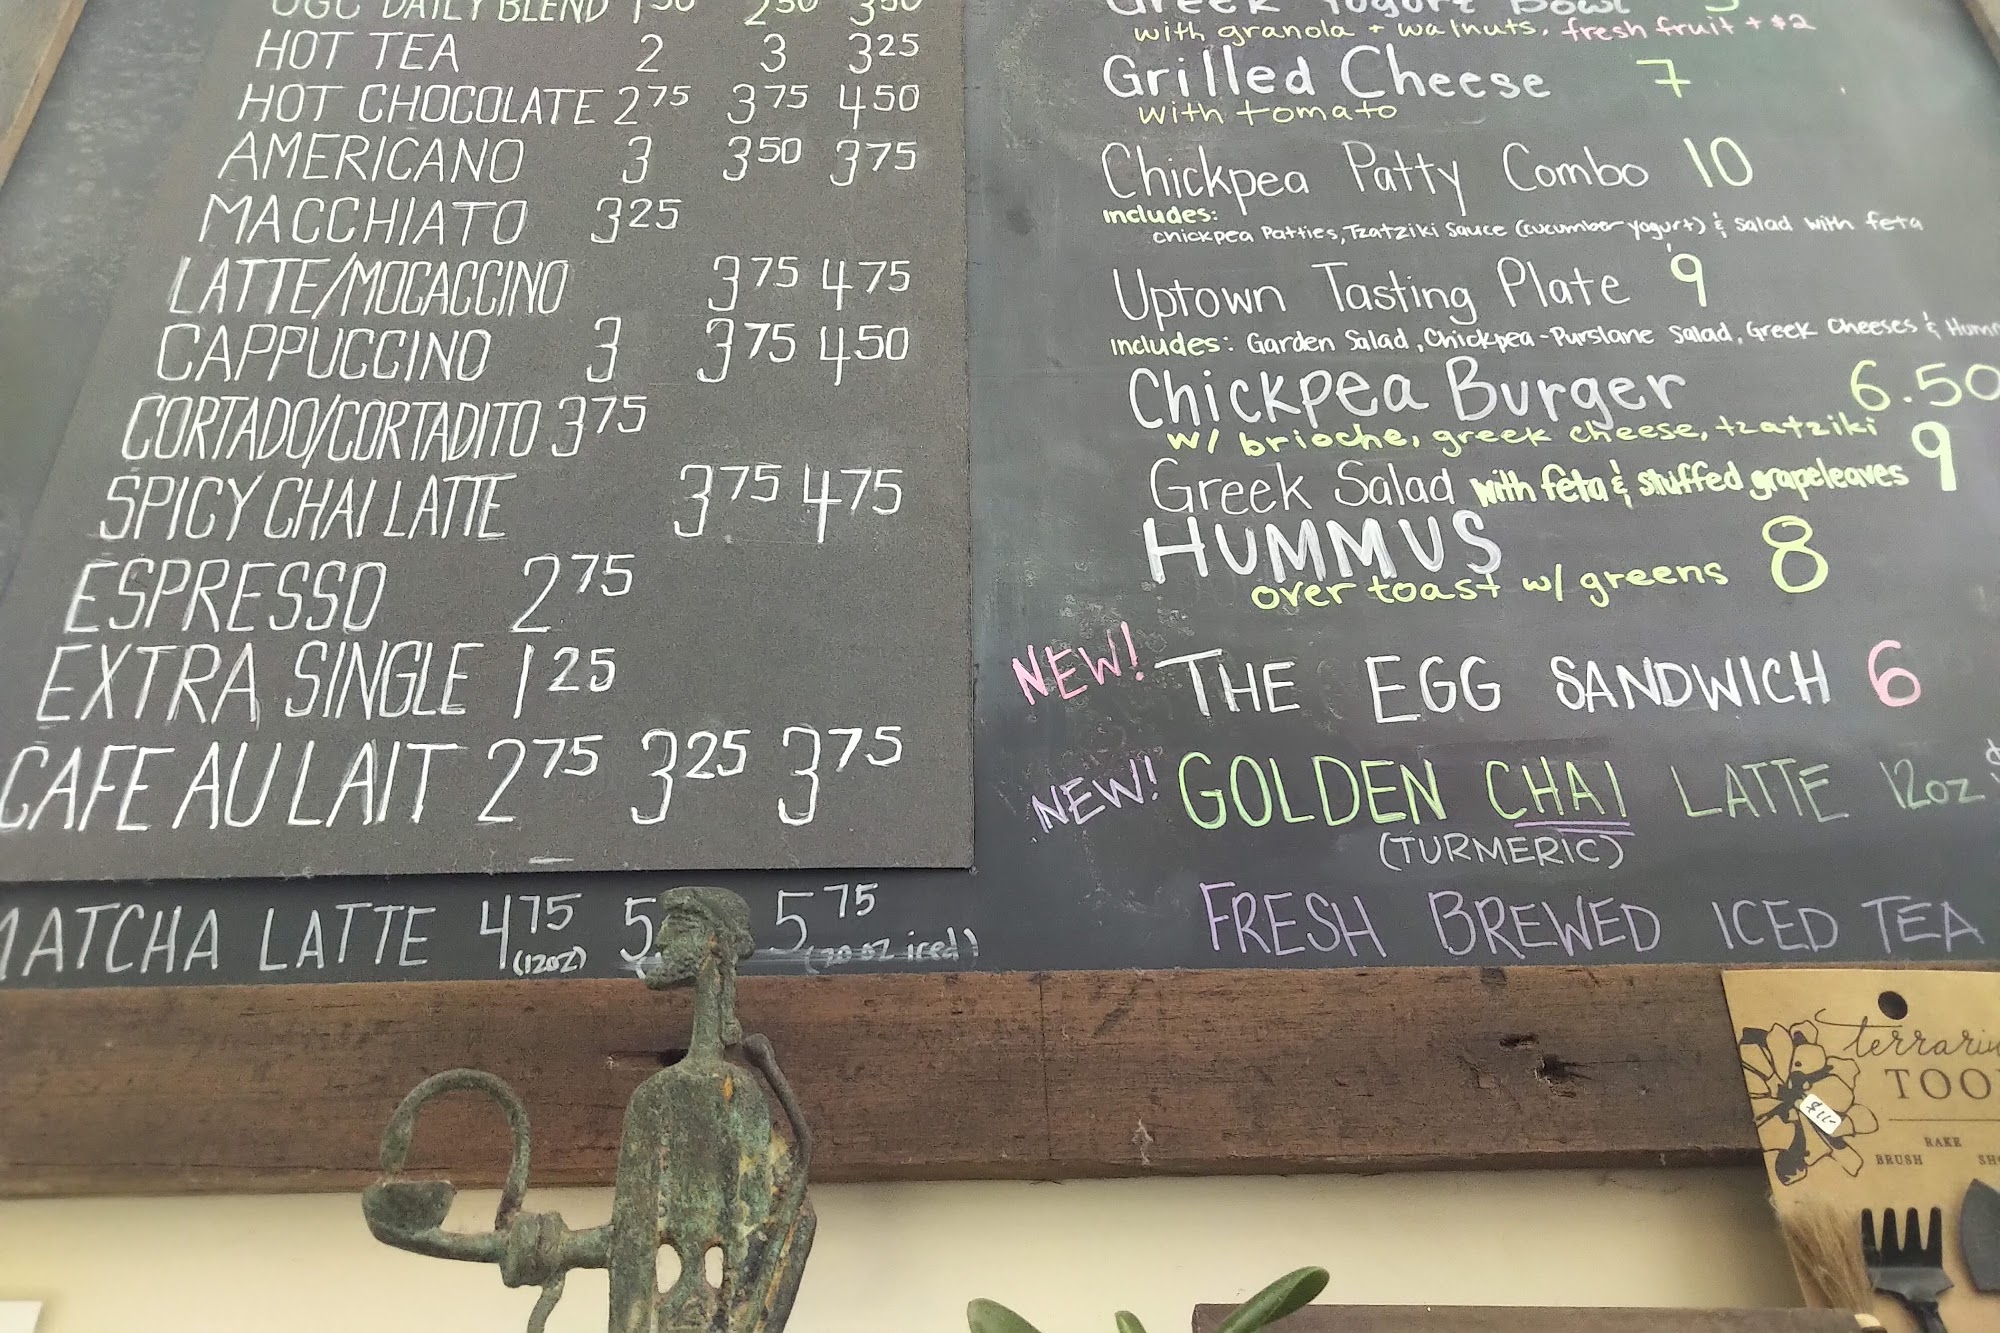 UGC DAILY BLEND 1 50 2 50 3 50
HOT TEA 2 3 3 25
HOT CHOCOLATE 2 75 3 75 4 50
AMERICANO 3 3 50 3 75
MACCHIATO 3 25
LATTE/MOCACCINO 3 75 4 75
CAPPUCCINO 3 3 75 4 50
CORTADO/CORTADITO 3 75
SPICY CHAI LATTE 3 75 4 75
ESPRESSO 2 75
EXTRA SINGLE 1 25
CAFE AU LAIT 2 75 3 25 3 75
MATCHA LATTE 4 75 5 5 75
(12oz) (20 oz iced)
Greek Yogurt Bowl 5
with granola + walnuts. fresh fruit + $2
Grilled Cheese 7
with tomato
Chickpea Patty Combo 10
includes:
chickpea Patties, Tzatziki Sauce (cucumber yogurt) & Salad with feta
Uptown Tasting Plate 9
includes: Garden Salad, Chickpea-Purslane Salad, Greek Cheeses &
Chickpea Burger 6.50
w/ brioche, greek cheese, tzatziki
Greek Salad with feta & stuffed grapeleaves 9
HUMMUS
over toast w/ greens 8
NEW! THE EGG SANDWICH 6
NEW! GOLDEN CHAI LATTE 12oz
(TURMERIC)
FRESH BREWED ICED TEA
RAKE
BRUSH